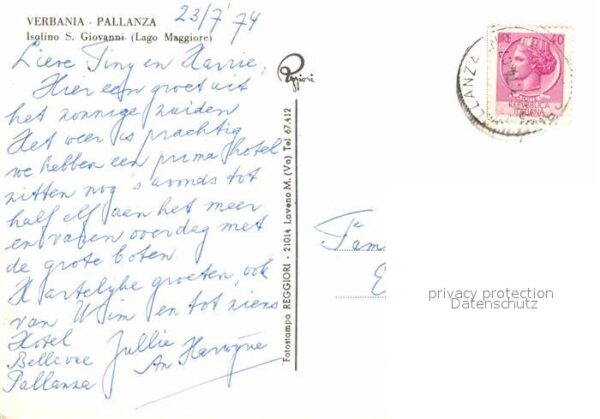 VERBANIA - PALLANZA
Isolino S. Giovanni (Lago Maggiore)
23/7 74
Lieve Tiny en Harrie,
Hier een groet uit
het zonnige zuiden
Het weer is prachtig
we hebben een prima hotel
zitten nog 's avonds tot
half elf aan het meer
en varen overdag met
de grote boten
Hartelijke groeten, ook
van Wim en tot ziens
Hotel
Bellevue
Pallanza
Jullie
An
Reggiori
Fotostampa REGGIORI - 21014 Laveno M. (Va) Tel 67.412
LIRE 40
REPUBBLICA
ITALIANA
PALLANZA
Fam
privacy protection
Datenschutz